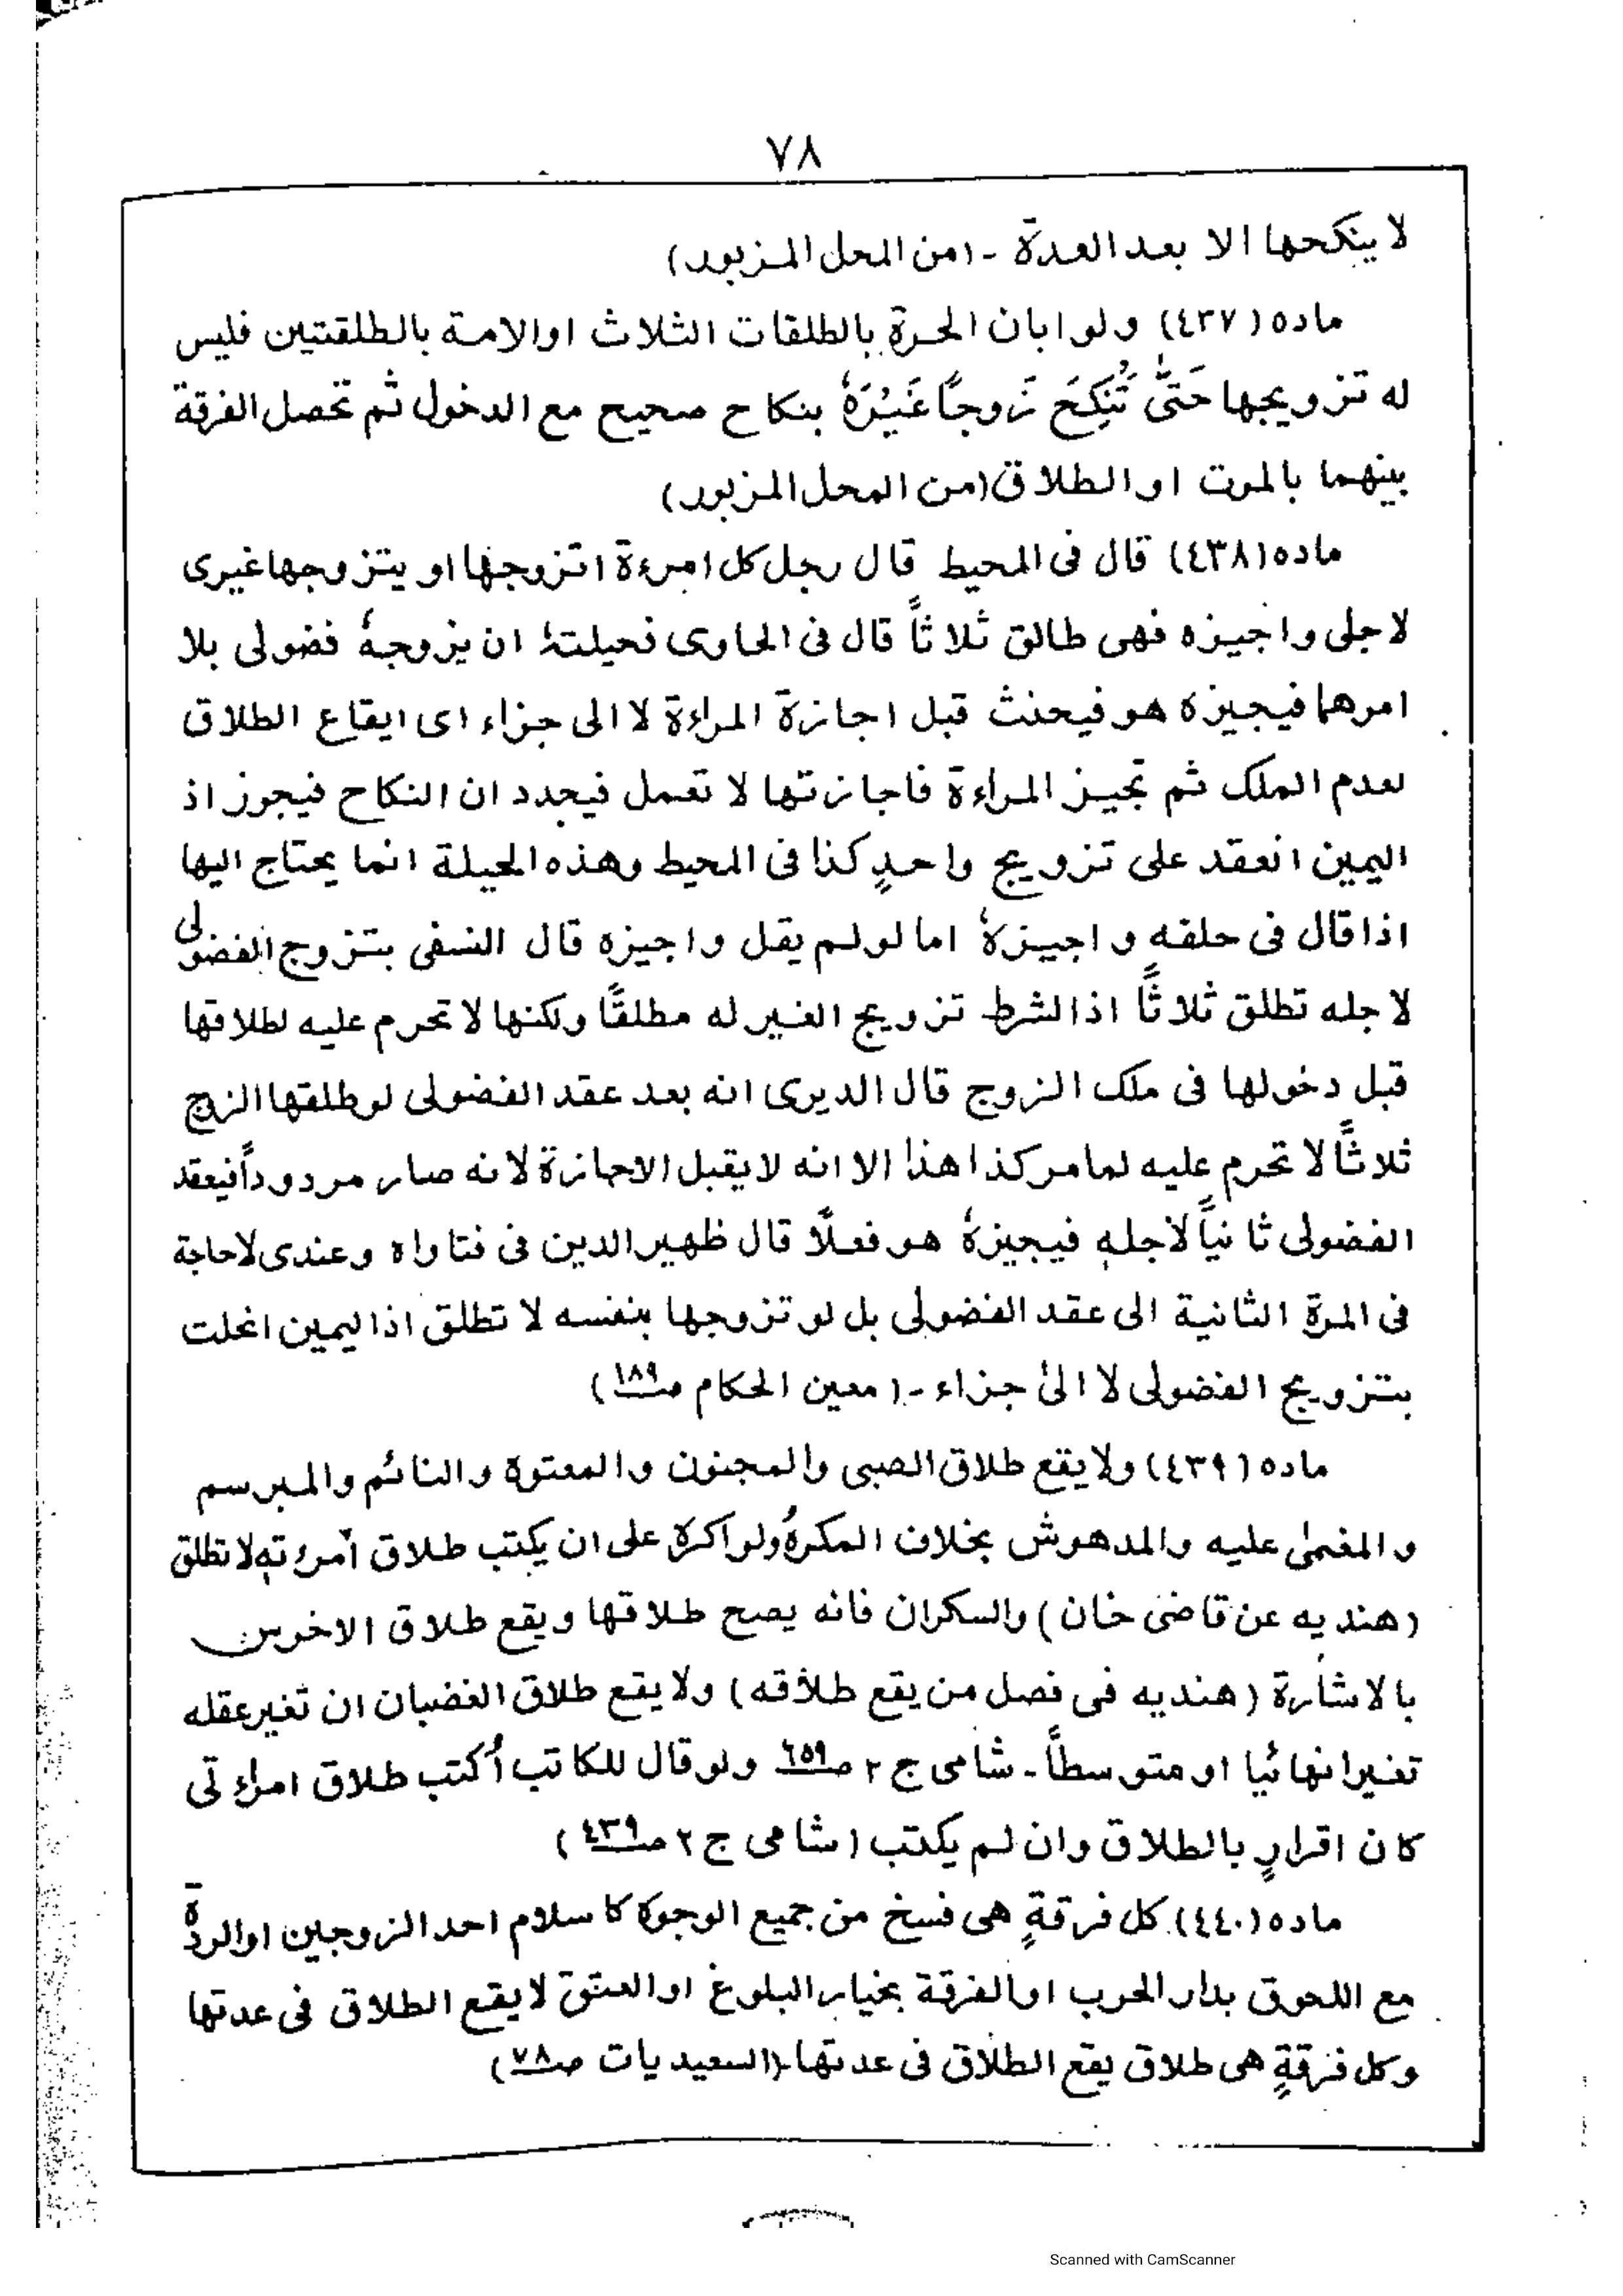 ٧٨
لا ينكحها الا بعد العدة - (من المحل المزبور)
ماده (٤٣٧) ولو ابان الحرة بالطلقات الثلاث او الامة بالطلقتين فليس
له تزويجها حَتّٰى تَنْكِحَ زَوجًا غَيْرَهٗ بنكاح صحيح مع الدخول ثم تحصل الفرقة
بينهما بالموت او الطلاق (من المحل المزبور)
ماده (٤٣٨) قال فى المحيط قال رجل كل امرءة اتزوجها او يتزوجها غيرى
لاجلى واجيزه فهى طالق ثلاثاً قال فى الحاوى فحيلتهٗ ان يزوجهٗ فضولى بلا
امرهما فيجيزه هو فيحنث قبل اجازة المراءة لا الى جزاء اى ايقاع الطلاق
لعدم الملك ثم تجيز المراءة فاجازتها لا تعمل فيجدد ان النكاح فيجوز اذ
اليمين انعقد على تزويج واحدٍ كذا فى المحيط وهذه الحيلة انما يحتاج اليها
اذا قال فى حلفه واجيزهٗ اما لو لم يقل واجيزه قال النسفى بتزوج الفضولى
لاجله تطلق ثلاثًا اذ الشرط تزويج الغير له مطلقًا ولكنها لا تحرم عليه لطلاقها
قبل دخولها فى ملك الزوج قال الديرى انه بعد عقد الفضولى لو طلقها الزوج
ثلاثًا لا تحرم عليه لما مر كذا هذا الا انه لا يقبل الاجازة لانه صار مردوداً فيعقد
الفضولى ثانياً لاجلهٖ فيجيزهٗ هو فعلًا قال ظهير الدين فى فتاواه وعندى لا حاجة
فى المرة الثانية الى عقد الفضولى بل لو تزوجها بنفسه لا تطلق اذ اليمين انحلت
بتزويج الفضولى لا الىٰ جزاء - (معين الحكام صـ١٨٩)
ماده (٤٣٩) ولا يقع طلاق الصبى والمجنون والمعتوه والنائم والمبرسم
والمغمىٰ عليه والمدهوش بخلاف المكرهٗ ولو اكره على ان يكتب طلاق امرءتهٖ لا تطلق
(هنديه عن قاضى خان) والسكران فانه يصح طلاقها ويقع طلاق الاخرس
بالاشارة (هنديه فى فصل من يقع طلاقه) ولا يقع طلاق الغضبان ان تغير عقله
تغيرا نهائيا او متوسطاً - شامى ج ٢ صـ٦٥٩ ولو قال للكاتب اُكتب طلاق امراءتى
كان اقرارٍ بالطلاق وان لم يكتب (شامى ج ٢ صـ٤٣٩)
ماده (٤٤٠) كل فرقةٍ هى فسخ من جميع الوجوه كاسلام احد الزوجين او الردة
مع اللحوق بدار الحرب او الفرقة بخيار البلوغ او العتق لا يقع الطلاق فى عدتها
وكل فرقةٍ هى طلاق يقع الطلاق فى عدتها (السعيديات صـ٧٨)
Scanned with CamScanner